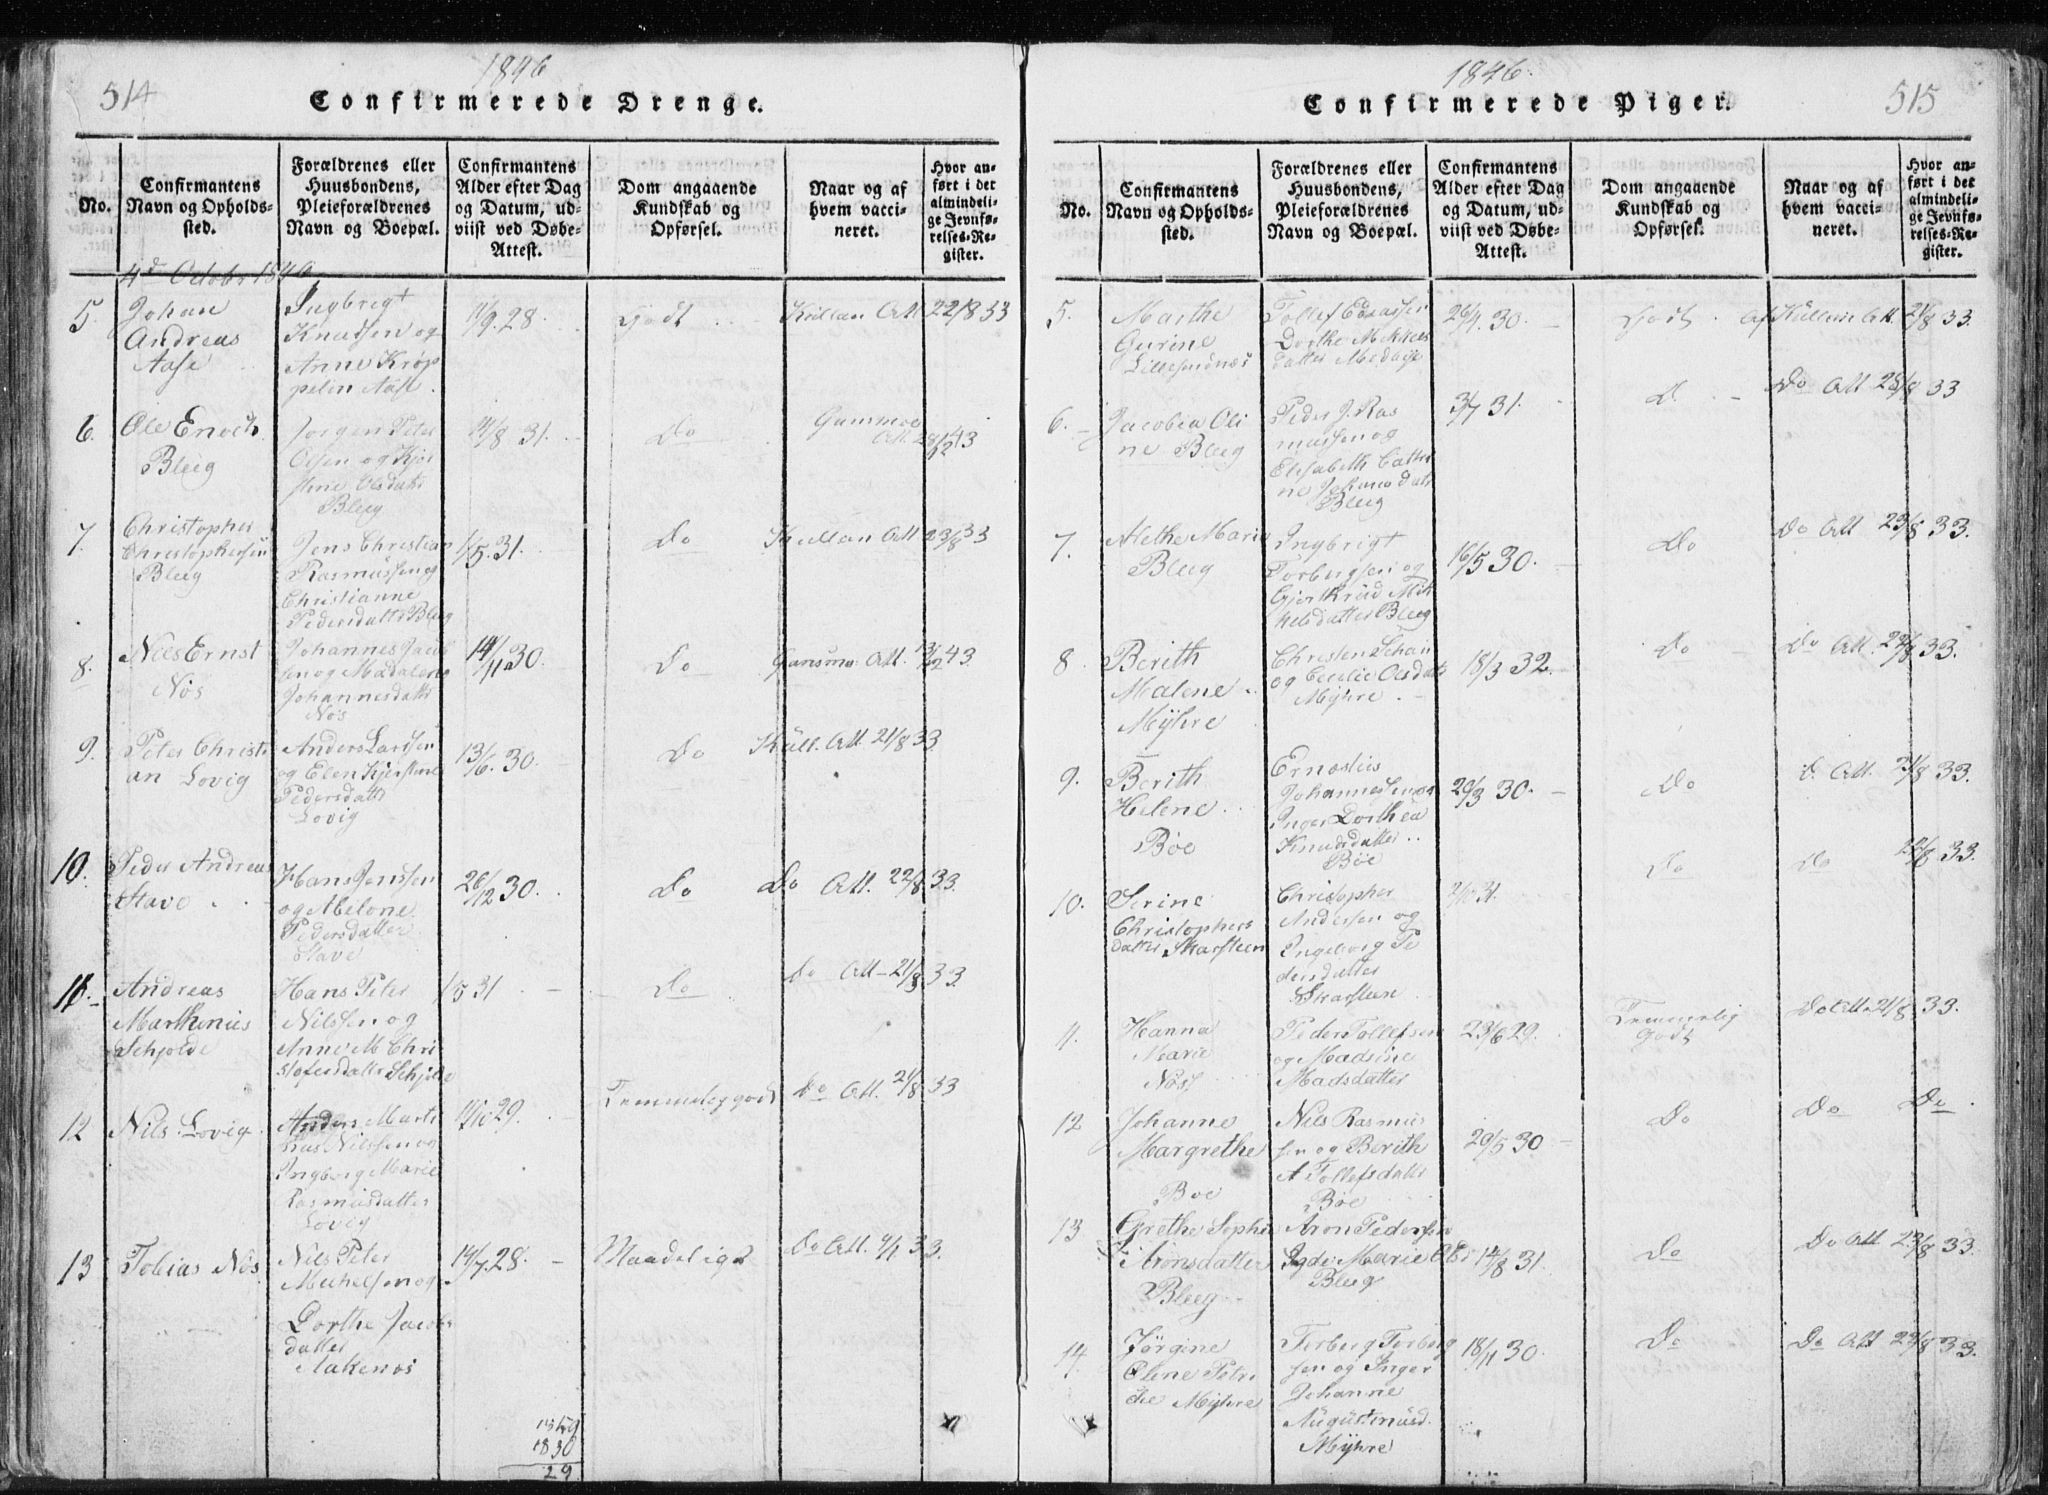 514
1846
Confirmerede Drenge.
No.
Confirmantens
Navn og Opholds-
sted.
Forældrenes eller
Huusbondens,
Pleieforældrenes
Navn og Boepæl.
Confirmantens
Alder efter Dag
og Datum, ud-
viist ved Døbe-
Attest.
Dom angaaende
Kundskab og
Opførsel.
Naar og af
hvem vacci-
neret.
Hvor an-
ført i det
almindeli-
ge Jevnfø-
relses-Re-
gister.
4d October 1846
5.
Johan
Andreas
Aase
Ingbrigt
Knutsen og
Anne Krøp
pelin Aase.
11/9. 28.
Godt
Kullan Att. 22/8 33
6.
Ole Enoch
Bleeg
Jørgen Peter
Olsen og Kjer
stine Olsdatter
Bleeg
14/8 31.
Do
Att. 28/12 43
7.
Christopher
Christophersen
Bleeg
Jens Christian
Rasmussen og
Christianne
Pedersdatter Bleeg
1/5. 31.
Do
Kullan Att 23/8 33
8.
Nils Ernst
Nøs
Johannes Jacob
sen og Madalene
Johannesdatter
Nøs
14/11 30.
Do
Att. 13/12 43.
9.
Peter Christi
an Lovig
Anders Larssen
og Elen Kjerstine
Pedersdatter
Lovig
13/6. 30.
Do
Kull. Att 21/8 33.
10.
Peder Andreas
Stave
Hans Jenssen
og Abelone
Pedersdatter
Stave
26/12 30.
Do
Do Att. 22/8 33.
11.
Andreas
Marthinus
Schjolde
Hans Peter
Nilssen og
Anne M Chri
stofersdatter Schjolde
1/5 31
Do
Do Att - 21/8 33.
12
Nils Lovig
Anders Marti
nus Nilssen og
Ingborg Marie
Rasmusdatter
Lovig
11/10 29.
Temmelig godt
Do Att. 21/8 33
13
Tobias Nøs
Nils Peter
Michelsen og
Dorthe Jacobs
datter
Aakenes
14/7. 28.
Maadeligt
Do Att. 4/1 33.
1859
1830
29
1846.
515
Confirmerede Piger.
No.
Confirmantens
Navn og Opholds-
sted.
Forældrenes eller
Huusbondens,
Pleieforældrenes
Navn og Boepæl.
Confirmantens
Alder efter Dag
og Datum, ud-
viist ved Døbe-
Attest.
Dom angaaende
Kundskab og
Opførsel.
Naar og af
hvem vacci-
neret.
Hvor an-
ført i det
almindeli-
ge Jevnfø-
relses-Re-
gister.
5.
Marthe
Gurine
Tollef Eliassen
Dorthe Mikkels
datter
26/4. 30.
Godt.
af Kullan Att. 21/8 33.
6.
Jacobia Oli
ne Bleeg
Peder J. Ras
mussen og
Elisabeth Cathri
ne
Bleeg
3/7 31.
D.
Do Att 28/8 33
7.
Alethe Marie
Bleeg
Ingbrigt
Torbergsen og
Gjertrud Mik
kelsdatter Bleeg
16/5 30.
Do
Do Att 23/8 33.
8
Berith
Malene
Myhre
Christen Johan
og Cecilie Olsdatter
Myhre
18/3 32.
Do
Do Att. 22/8 33.
9.
Berith
Helene
Bøe
Ernestus
Johannessen og
Inger Dorthea
Knudsdatter
Bøe
29/3 30.
Do
D. Att. 21/8 33.
10.
Serine
Christophers
datter Skarsteen
Christopher
Andersen og
Ingeborg Pe
dersdatter
Skarsteen
2/10 31.
Do
Do 22/8 33.
11.
Hanna
Marie
Nøss
Peder Tollefsen
og Madsine
Madsdatter
23/6 29.
Temmelig
Godt
Do Att 21/8 33.
12
Johanne
Margrethe
Bøe
Nils Rasmus
sen og Berith
A Tollefsdatter
Bøe
29/5 30
Do
Do
Do.
13
Grethe Sophie
Aronsdatter
Bleeg
Aron Pedersen
Marie
Bleeg
14/8 31.
Do
Do Att 23/8 33.
14.
Jørgine
Elene Petri
che Myhre
Torberg Torberg
sen og Inger
Johanne
Augustinusd.
Myhre
18/11 30.
Do
Do Att 23/8 33.